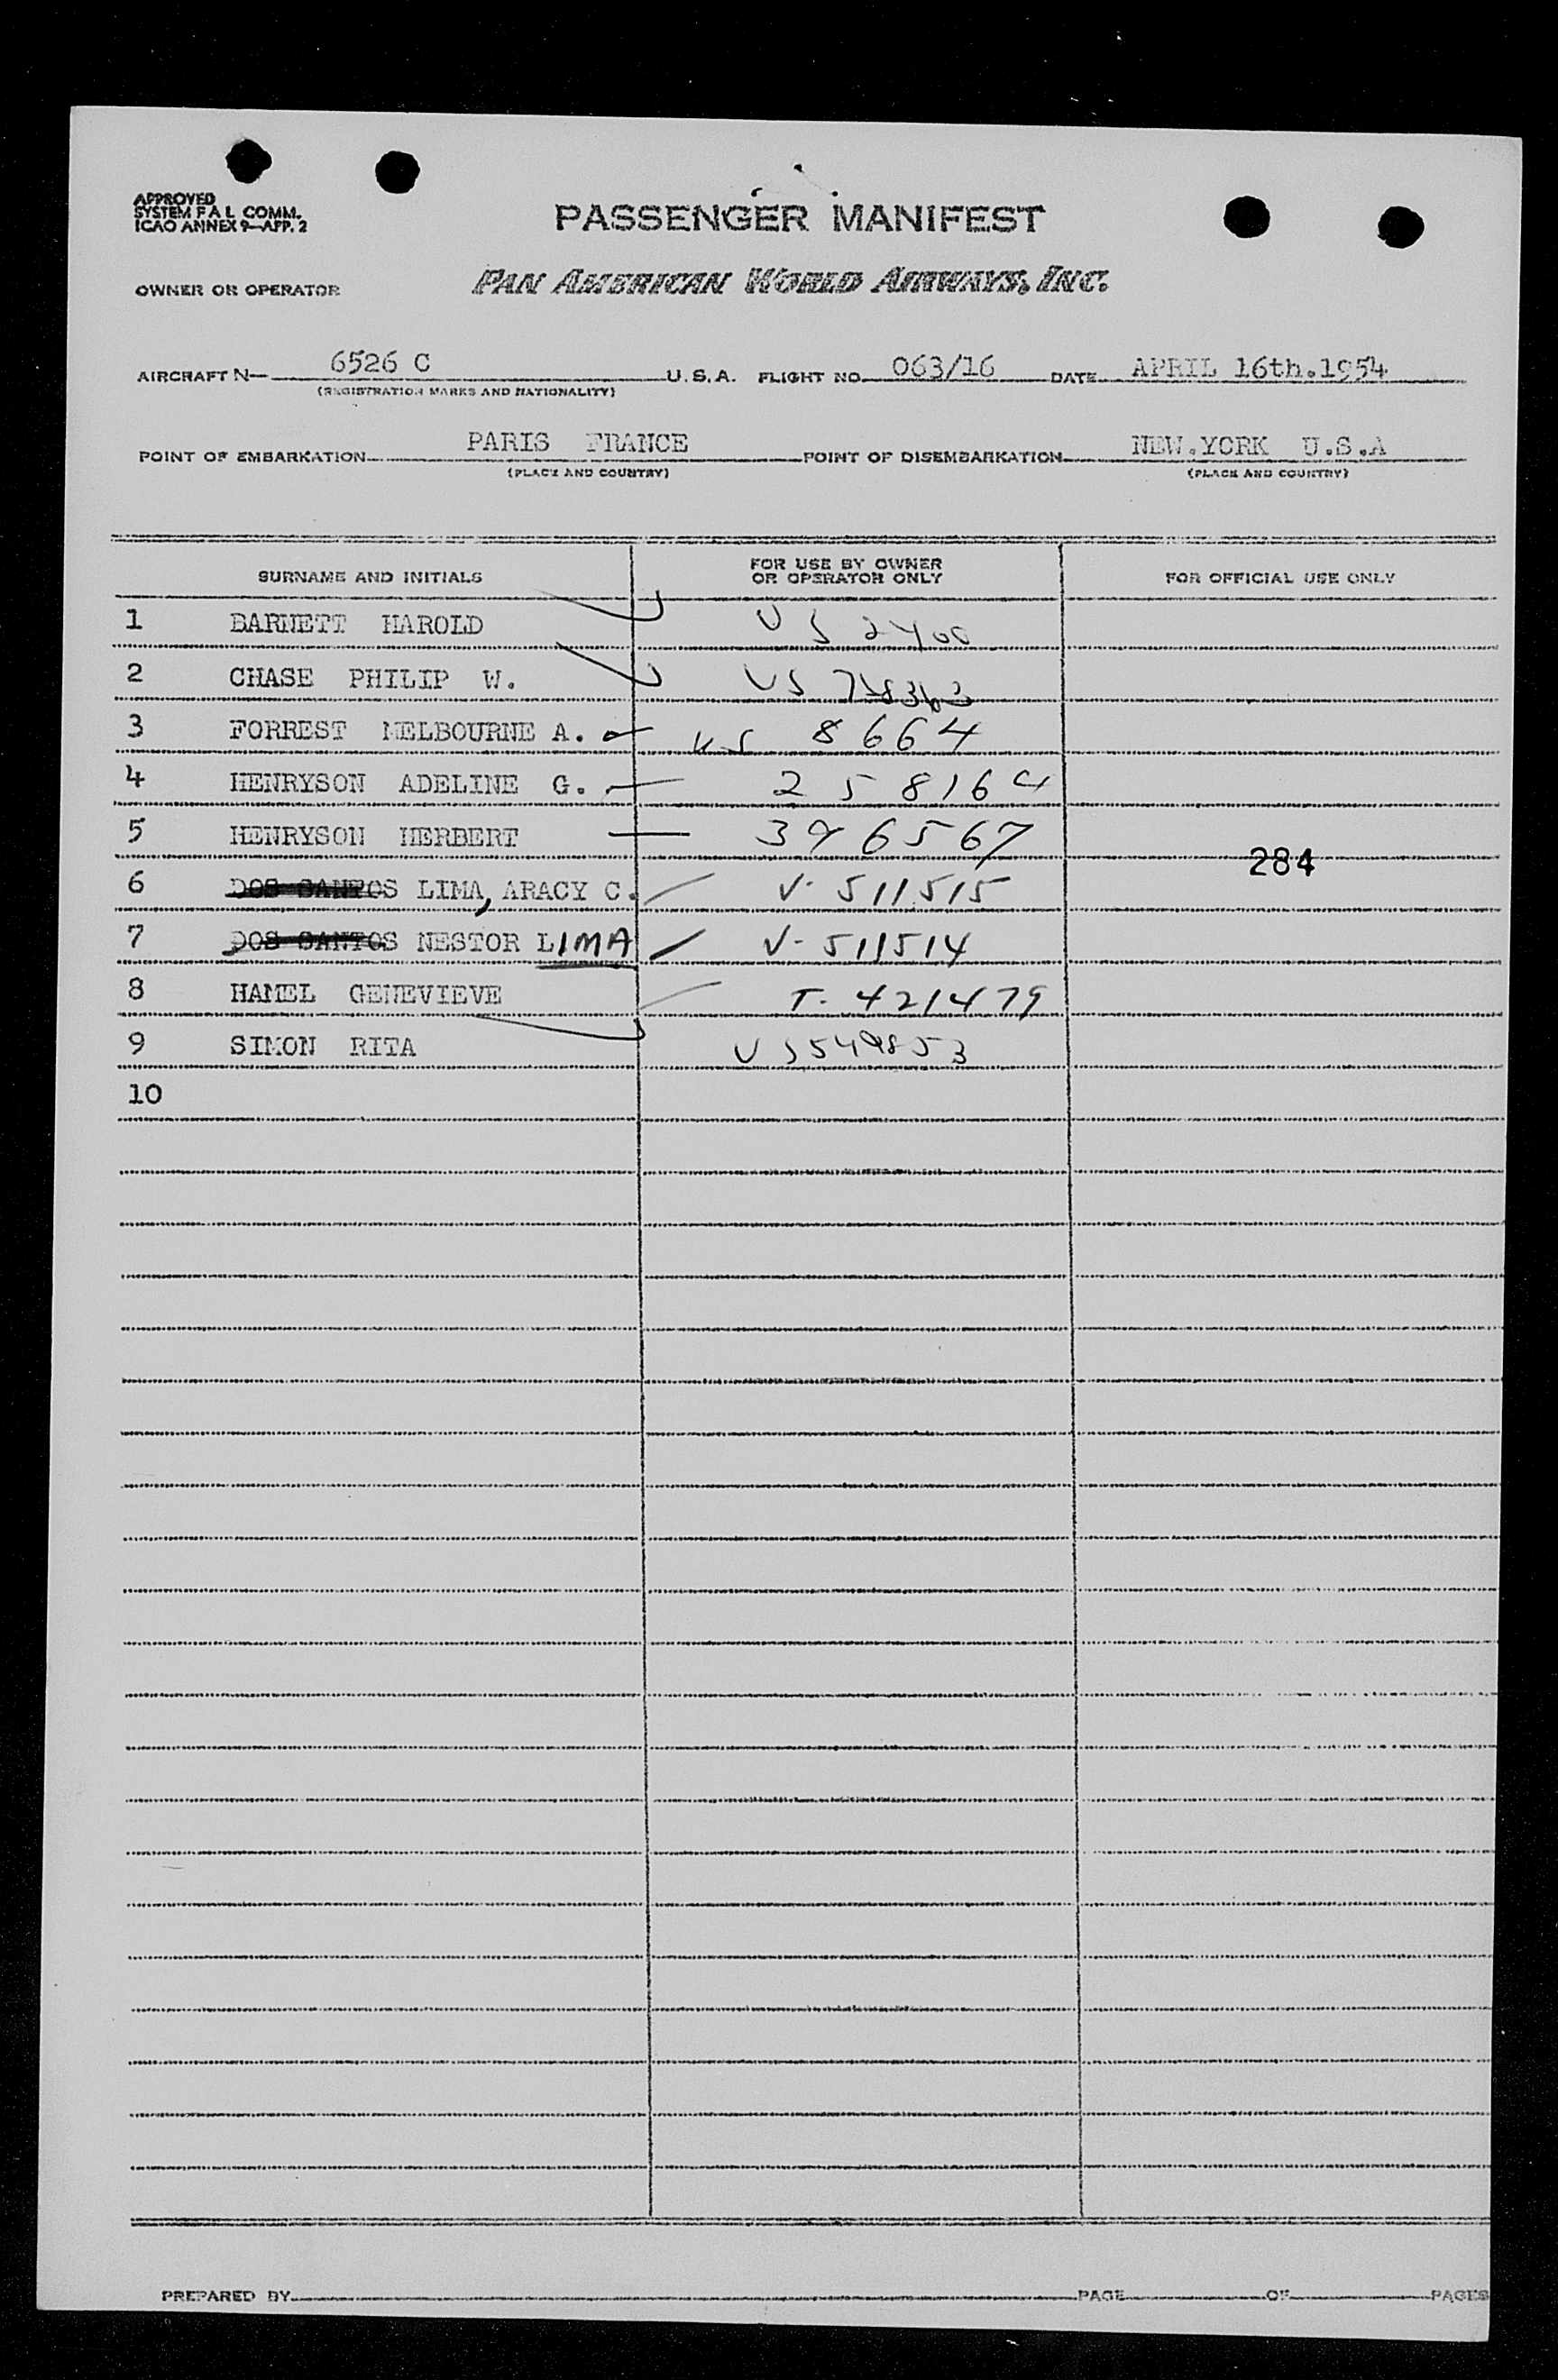 APPROVED
SYSTEM F A L COMM.
ICAO ANNEX 9—APP. 2
PASSENGER MANIFEST
OWNER OR OPERATOR
PAN AMERICAN WORLD AIRWAYS, INC.
AIRCRAFT N— 6526 C U.S.A. FLIGHT NO. 063/16 DATE APRIL 16th.1954
(REGISTRATION MARKS AND NATIONALITY)
POINT OF EMBARKATION PARIS FRANCE POINT OF DISEMBARKATION NEW.YORK U.S.A
(PLACE AND COUNTRY) (PLACE AND COUNTRY)
SURNAME AND INITIALS FOR USE BY OWNER OR OPERATOR ONLY FOR OFFICIAL USE ONLY
1 BARNETT HAROLD US 2400
2 CHASE PHILIP W. US
3 FORREST MELBOURNE A. US 8664
4 HENRYSON ADELINE G. 258164
5 HENRYSON HERBERT
284
6 DOS SANTOS LIMA, ARACY C. V- 511515
7 DOS SANTOS NESTOR LIMA V- 511514
8 HAMEL GENEVIEVE T- 421479
9 SIMON RITA US 549853
10
PREPARED BY PAGE OF PAGES